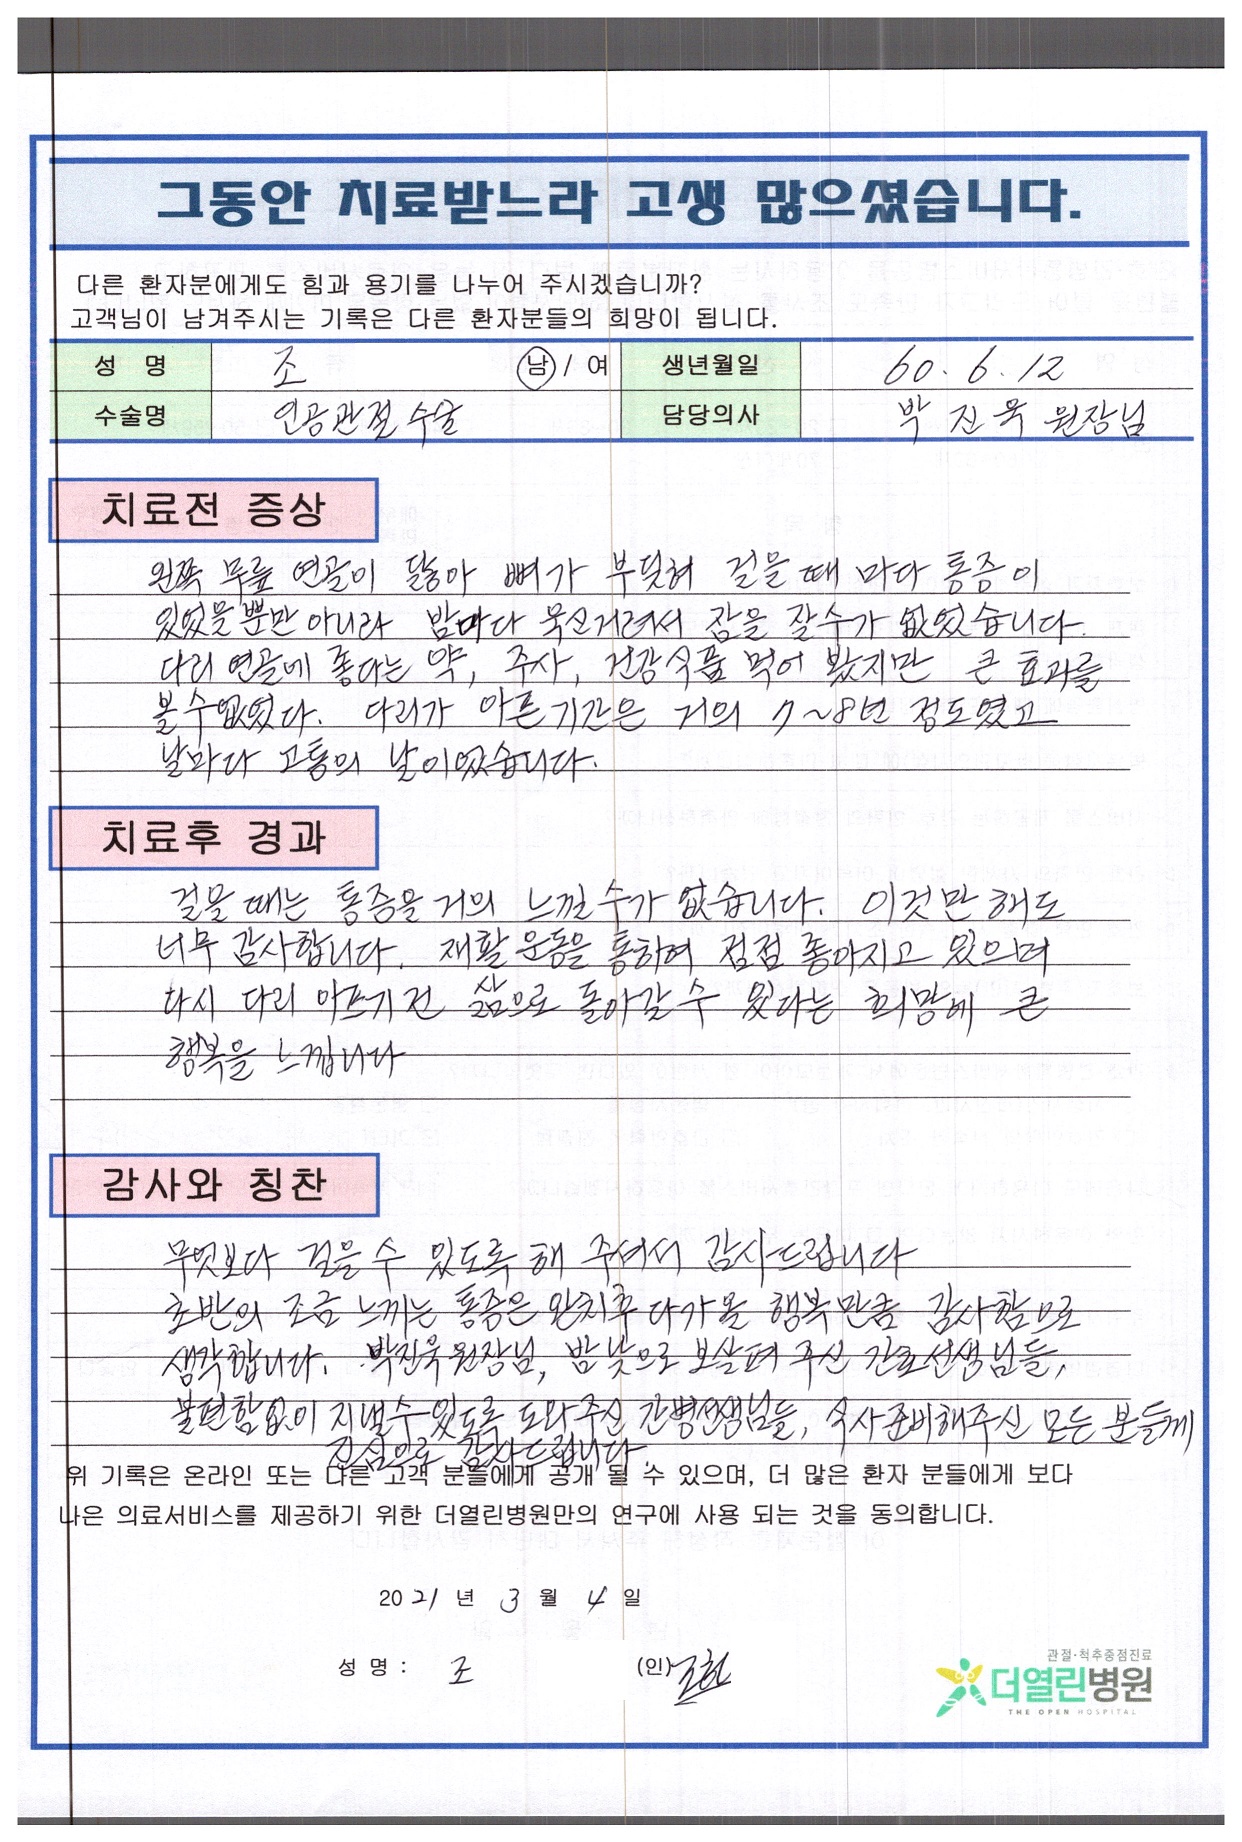 그동안 치료받느라 고생 많으셨습니다.
다른 환자분에게도 힘과 용기를 나누어 주시겠습니까?
고객님이 남겨주시는 기록은 다른 환자분들의 희망이 됩니다.
성 명 조 남 / 여 생년월일 60. 6. 12
수술명 인공관절수술 담당의사 박진욱 원장님
치료전 증상
왼쪽 무릎 연골이 닳아 뼈가 부딪혀 걸을때 마다 통증이
있었을뿐만 아니라 밤마다 욱신거려서 잠을 잘수가 없었습니다.
다리 연골에 좋다는 약, 주사, 건강식품 먹어 봤지만 큰 효과를
볼수없었다. 다리가 아픈기간은 거의 7~8년 정도였고
날마다 고통의 날이었습니다.
치료후 경과
걸을때는 통증을 거의 느낄수가 없습니다. 이것만 해도
너무 감사합니다. 재활운동을 통하여 점점 좋아지고 있으며
다시 다리 아프기전 삶으로 돌아갈수 있다는 희망에 큰
행복을 느낍니다
감사와 칭찬
무엇보다 걸을수 있도록 해 주셔서 감사드립니다
초반의 조금 느끼는 통증은 완치후 다가올 행복만큼 감사함으로
생각합니다. 박진욱원장님, 밤낮으로 보살펴 주신 간호선생님들,
불편함없이 지낼수있도록 도와주신 간병선생님들, 식사준비해주신 모든 분들께
진심으로 감사드립니다.
위 기록은 온라인 또는 다른 고객 분들에게 공개 될 수 있으며, 더 많은 환자 분들에게 보다
나은 의료서비스를 제공하기 위한 더열린병원만의 연구에 사용 되는 것을 동의합니다.
2021 년 3 월 4 일
성 명 : 조 (인)
관절·척추중점진료
더열린병원
THE OPEN HOSPITAL